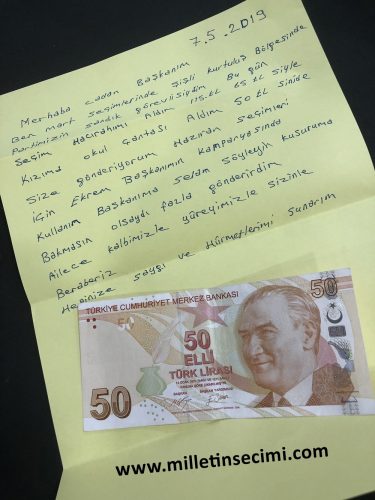 7.5.2019
Merhaba canan Başkanım
Ben mart seçimlerinde Şişli kurtuluş Bölgesinde
Partimizin sandık görevlisiydim Bu gün
Seçim Harcırahımı Aldım 115.tl 65 tl siyle
Kızıma okul Çantası Aldım 50 tl sinide
Size gönderiyorum Haziran seçimleri
için Ekrem Başkanımın kampanyasında
Kullanın Başkanıma selam söyleyin kusuruma
Bakmasın olsaydı fazla gönderirdim
Ailece kalbimizle yüreyimizle sizinle
Beraberiz
Hepinize saygı ve Hürmetlerimi sunarım
TÜRKİYE CUMHURİYET MERKEZ BANKASI
50
50
ELLİ
TÜRK LİRASI
50
www.milletinsecimi.com